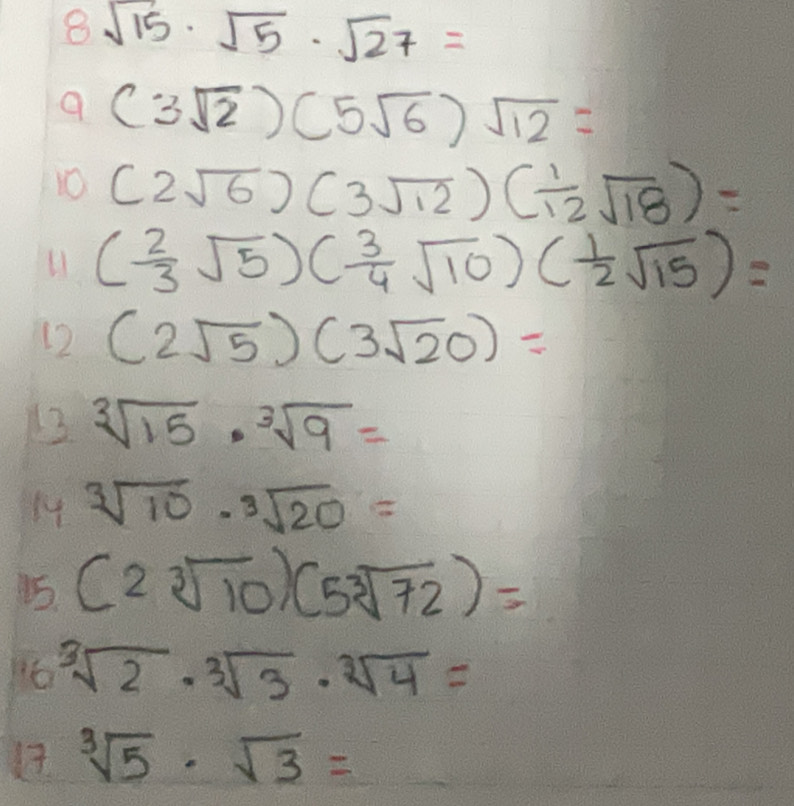 8 √15 · √5 · √27 =
9 (3√2)(5√6) √12 =
10 (2√6)(3√12)(1/12 √18) =
11 (2/3 √5)(3/4 √10)(1/2 √15) =
12 (2√5)(3√20) =
13 ∛15 · ∛9 =
14 ∛10 · ∛20 =
15. (2 ∛10)(5∛72) =
16 ∛2 · ∛3 · ∛4 =
17 ∛5 · √3 =